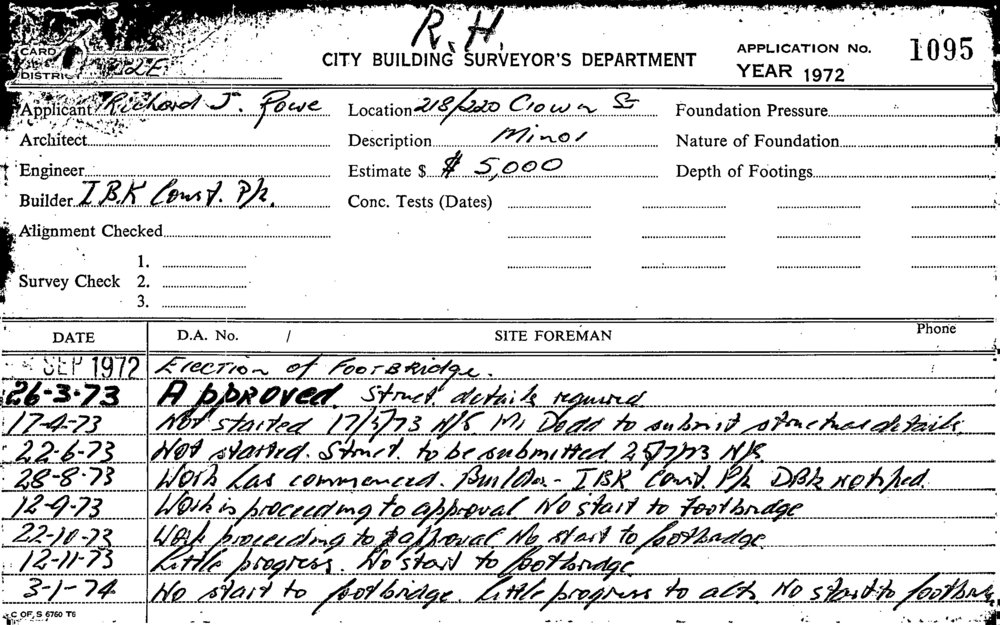 R.H.
CARD
DISTRICT 22E
CITY BUILDING SURVEYOR'S DEPARTMENT
APPLICATION No. 1095
YEAR 1972
Applicant Richard J. Rowe Location 218/220 Crown St Foundation Pressure
Architect Description Minor Nature of Foundation
Engineer Estimate $ $ 5,000 Depth of Footings
Builder I.B.K Const. P/L. Conc. Tests (Dates)
Alignment Checked
1.
Survey Check 2.
3.
DATE D.A. No. / SITE FOREMAN Phone
SEP 1972 Erection of Footbridge.
26-3-73 Approved. Struct. details required
17-4-73 Not started 17/5/73 N/S Mr Dodd to submit structural details.
22-6-73 Not started. Struct. to be submitted 25/7/73 N/S.
28-8-73 Work has commenced. Builder - IBK Const. P/L notified.
12-9-73 Work is proceeding to approval No start to footbridge
22-10-73 Work proceeding to approval No start to footbridge.
12-11-73 Little progress. No start to footbridge
3-1-74 No start to footbridge. Little progress to alts. No start to footbridge
C OF S 6760 T6